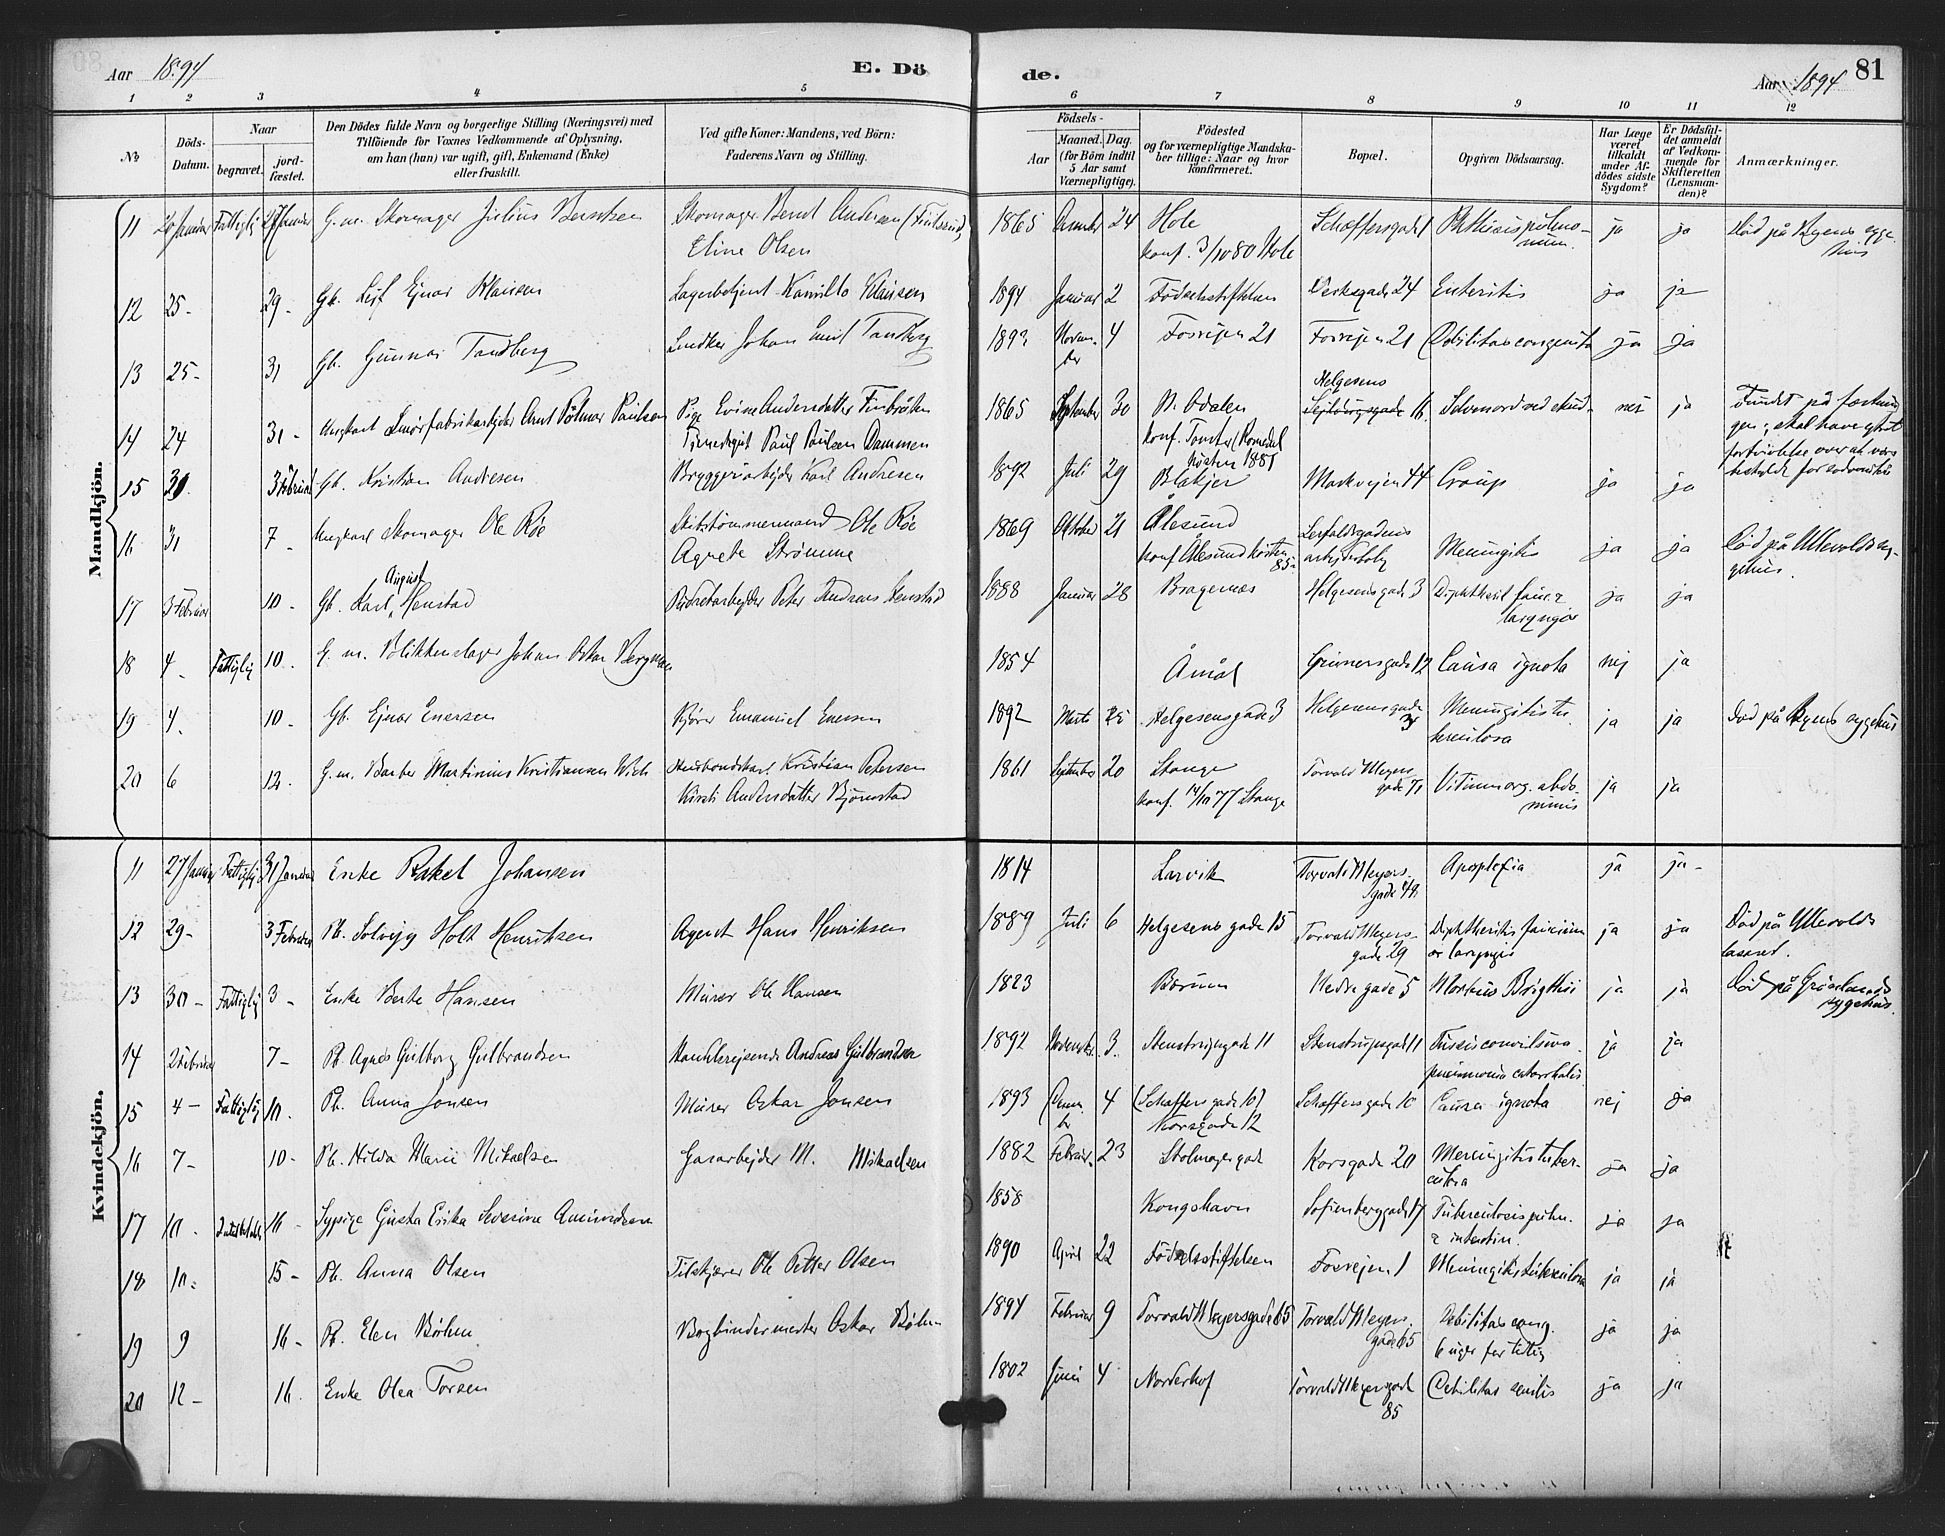 Aar 1894
E. Döde.
Aar 1894 81
1 2 3 4 5 6 7 8 9 10 11 12
No
Döds-Datum.
Naar
begravet.
jord-fæstet.
Den Dödes fulde Navn og borgerlige Stilling (Næringsvei) med
Tilföiende for Voxnes Vedkommende af Oplysning,
om han (hun) var ugift, gift, Enkemand (Enke)
eller fraskilt.
Ved gifte Koner: Mandens, ved Börn:
Faderens Navn og Stilling.
Födsels-
Aar
Maaned. Dag.
(for Börn indtil
5 Aar samt
Værnepligtige).
Födested
og for værnepligtige Mandska-
ber tillige: Naar og hvor
konfirmeret.
Bopæl.
Opgiven Dödsaarsag.
Har Læge
været
tilkaldt
under Af-
dödes sidste
Sygdom?
Er Dödsfal-
det anmeldt
af Vedkom-
mende for
Skifteretten
(Lensman-
den)?
Anmærkninger.
Mandkjön.
11 Januar Fattiglig 27 Januar G. m. Skomager Julius Berntsen Skomager Bernt Andersen
Eline Olsen
1865 24 Hole
konf. 3/10 80 Hole
Schæffersgade 1 Phthisis pulmo-
num. ja ja Död på Byens syge-
hus
12 25- 29- Gb. Leif Ejnar Klausen Lagerbetjent Kamillo Klausen 1894 Januar 2 Födselsstiftelsen 24 Enteritis ja ja
13 25- 31 Gb. Gunnar Tandberg Johan Emil Tandberg 1893 Novem-
ber 4 Fosvejen 21 Fosvejen 21 Debilitas congenita ja ja
14 24 31- Ungkarl Smörfabrikarbejder Paulsen Pige Evine Andersdatter
Paul Paulsen Dammen
1865 September 30 N. Odalen
konf. Romedal
hösten 1881
Helgesens
gade 16. Selvmord ved skud- nei ja Fundet på fæstnin-
gen; skal have gjort
fortvivlelse over at være
15 30. 3 Februar Gb. Kristian Andresen Bryggeriarbejder Karl Andresen 1892 Juli 29 Blakjer Markvejen 44 Croup ja ja
16 31 7- Ungkarl Skomager Ole Röe Skibstömmermand Ole Röe
Agnete Strömme
1869 Oktober 21 Ålesund
konf. Ålesund hösten
85-
arbejderbolig Meningitis ja ja Död på Ullevolds sy-
gehus.
17 3 Februar 10- Gb. Karl August Henstad Peter Andreas Henstad 1888 Januar 28 Bragernæs Helgesensgade 3 Diphtherit. fauc. &
laryngis ja ja
18 4- Fattiglig 10. G. m. Johan Oskar Bergman 1854 Åmål Grünersgade 12 Causa ignota nej ja
19 4. 10- Gb. Ejnar Enersen Emanuel Enersen 1892 Marts 25 Helgesensgade 3 Helgesensgade
Meningitis tu-
berculosa ja ja Död på Byens sygehus
20 6 12. G. m. Barber Martinius Kristiansen Wich Husbondskarl Kristian Petersen
Kirsti Andersdatter Björnstad
1861 September 20 Stange
konf. 14/10 77 Stange
Torvald Meyers
gade 71 Vitium org. abdo-
minis ja ja
Kvindekjön.
11 27 Januar Fattiglig 31 Januar Enke Rakel Johansen 1814 Larvik Torvald Meyers
gade 49. Apoplexia ja ja-
12 29- 3 Februar Pb. Solvejg Holt Henriksen Agent Hans Henriksen 1889 Juli 6 Helgesens gade 15 Torvald Meyers-
gade 29 Diphtheritis faucium
et laryngis ja ja Död på Ullevolds
lasaret.
13 30- Fattiglig 3- Enke Berte Hansen Murer Ole Hansen 1823 Bærum Nedregade 5 Morbus Brightii ja ja Död på Grönlands
sygehus.
14 2 Februar 7- Pb. Agnes Gulborg Gulbrandsen Handelsrejsende Andreas Gulbrandsen 1892 November 3. Stenstrupsgade 11 Stenstrupsgade 11 Tussis convulsiva.
pneumonia catarrhalis. ja ja
15 4- Fattiglig 10. Pb. Anna Jonsen Murer Oskar Jonsen 1893 Decem-
ber 4 (Schæffersgade 10)
Korsgade 12
Schæffersgade 10 Causa ignota nej ja
16 7- 10- Pb. Hilda Marie Mikaelsen Gasarbejder M. Mikaelsen 1882 Februar 23 Korsgade 20 Meningitis tuber-
culosa ja ja
17 10. 16- Sypige Gusta Erika Severine Amundsen 1858 Kongshavn Sofienberggade 17 Tuberculosis pulm.
& intestin. ja ja
18 10- 15- Pb. Anna Olsen Tilskjærer Ole Petter Olsen 1890 April 22 Födselsstiftelsen Fosvejen 1 Meningitis tuberculosa ja ja
19 9 16- Pb. Elen Böhm Bogbindermester Oskar Böhm 1894 Februar 9 Torvald Meyersgade 65 Torvald Meyers-
gade 65 Debilitas cong.
6 uger for tidlig ja ja
20 12- 16. Enke Olea Torsen 1802 Juni 4 Norderhof Torvald Meyersgade
85 Debilitas senilis ja ja